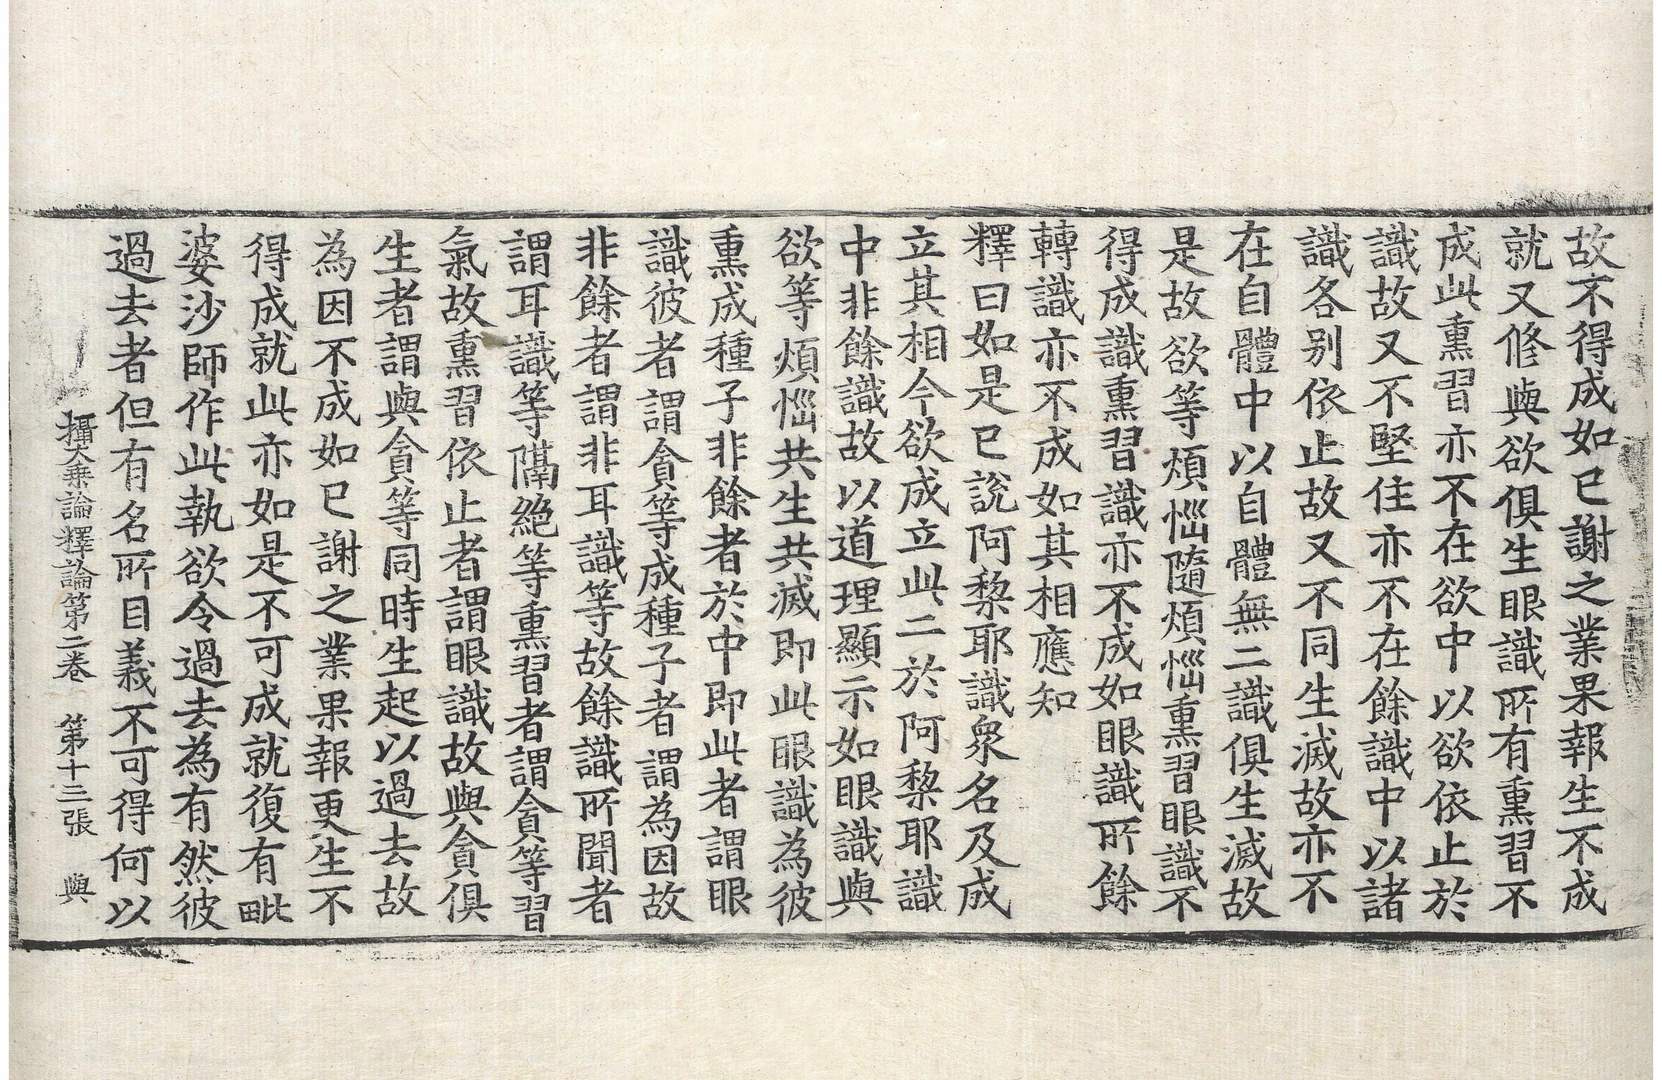 故不得成如已謝之業果報生不成
就又修與欲俱生眼識所有熏習不
成此熏習亦不在欲中以欲依止於
識故又不堅住亦不在餘識中以諸
識各别依止故又不同生滅故亦不
在自體中以自體無二識俱生滅故
是故欲等煩惱隨煩惱熏習眼識不
得成識熏習識亦不成如眼識所餘
轉識亦不成如其相應知
釋曰如是已說阿黎耶識衆名及成
立其相今欲成立此二於阿黎耶識
中非餘識故以道理顯示如眼識與
欲等煩惱共生共滅即此眼識為彼
熏成種子非餘者於中即此者謂眼
識彼者謂貪等成種子者謂為因故
非餘者謂非耳識等故餘識所聞者
謂耳識等隔絕等熏習者謂貪等習
氣故熏習依止者謂眼識故與貪俱
生者謂與貪等同時生起以過去故
為因不成如已謝之業果報更生不
得成就此亦如是不可成就復有毗
婆沙師作此執欲令過去為有然彼
過去者但有名所目義不可得何以
攝大乘論釋論第二卷 第十三張 與